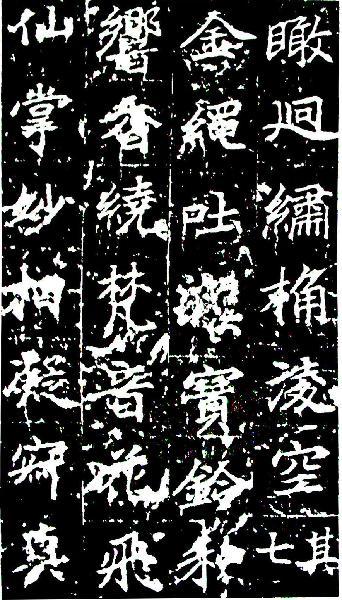 瞰迥繡桷凌空其七
金繩吐寶鈴
響香繞梵音花飛
仙掌妙相凝寂真